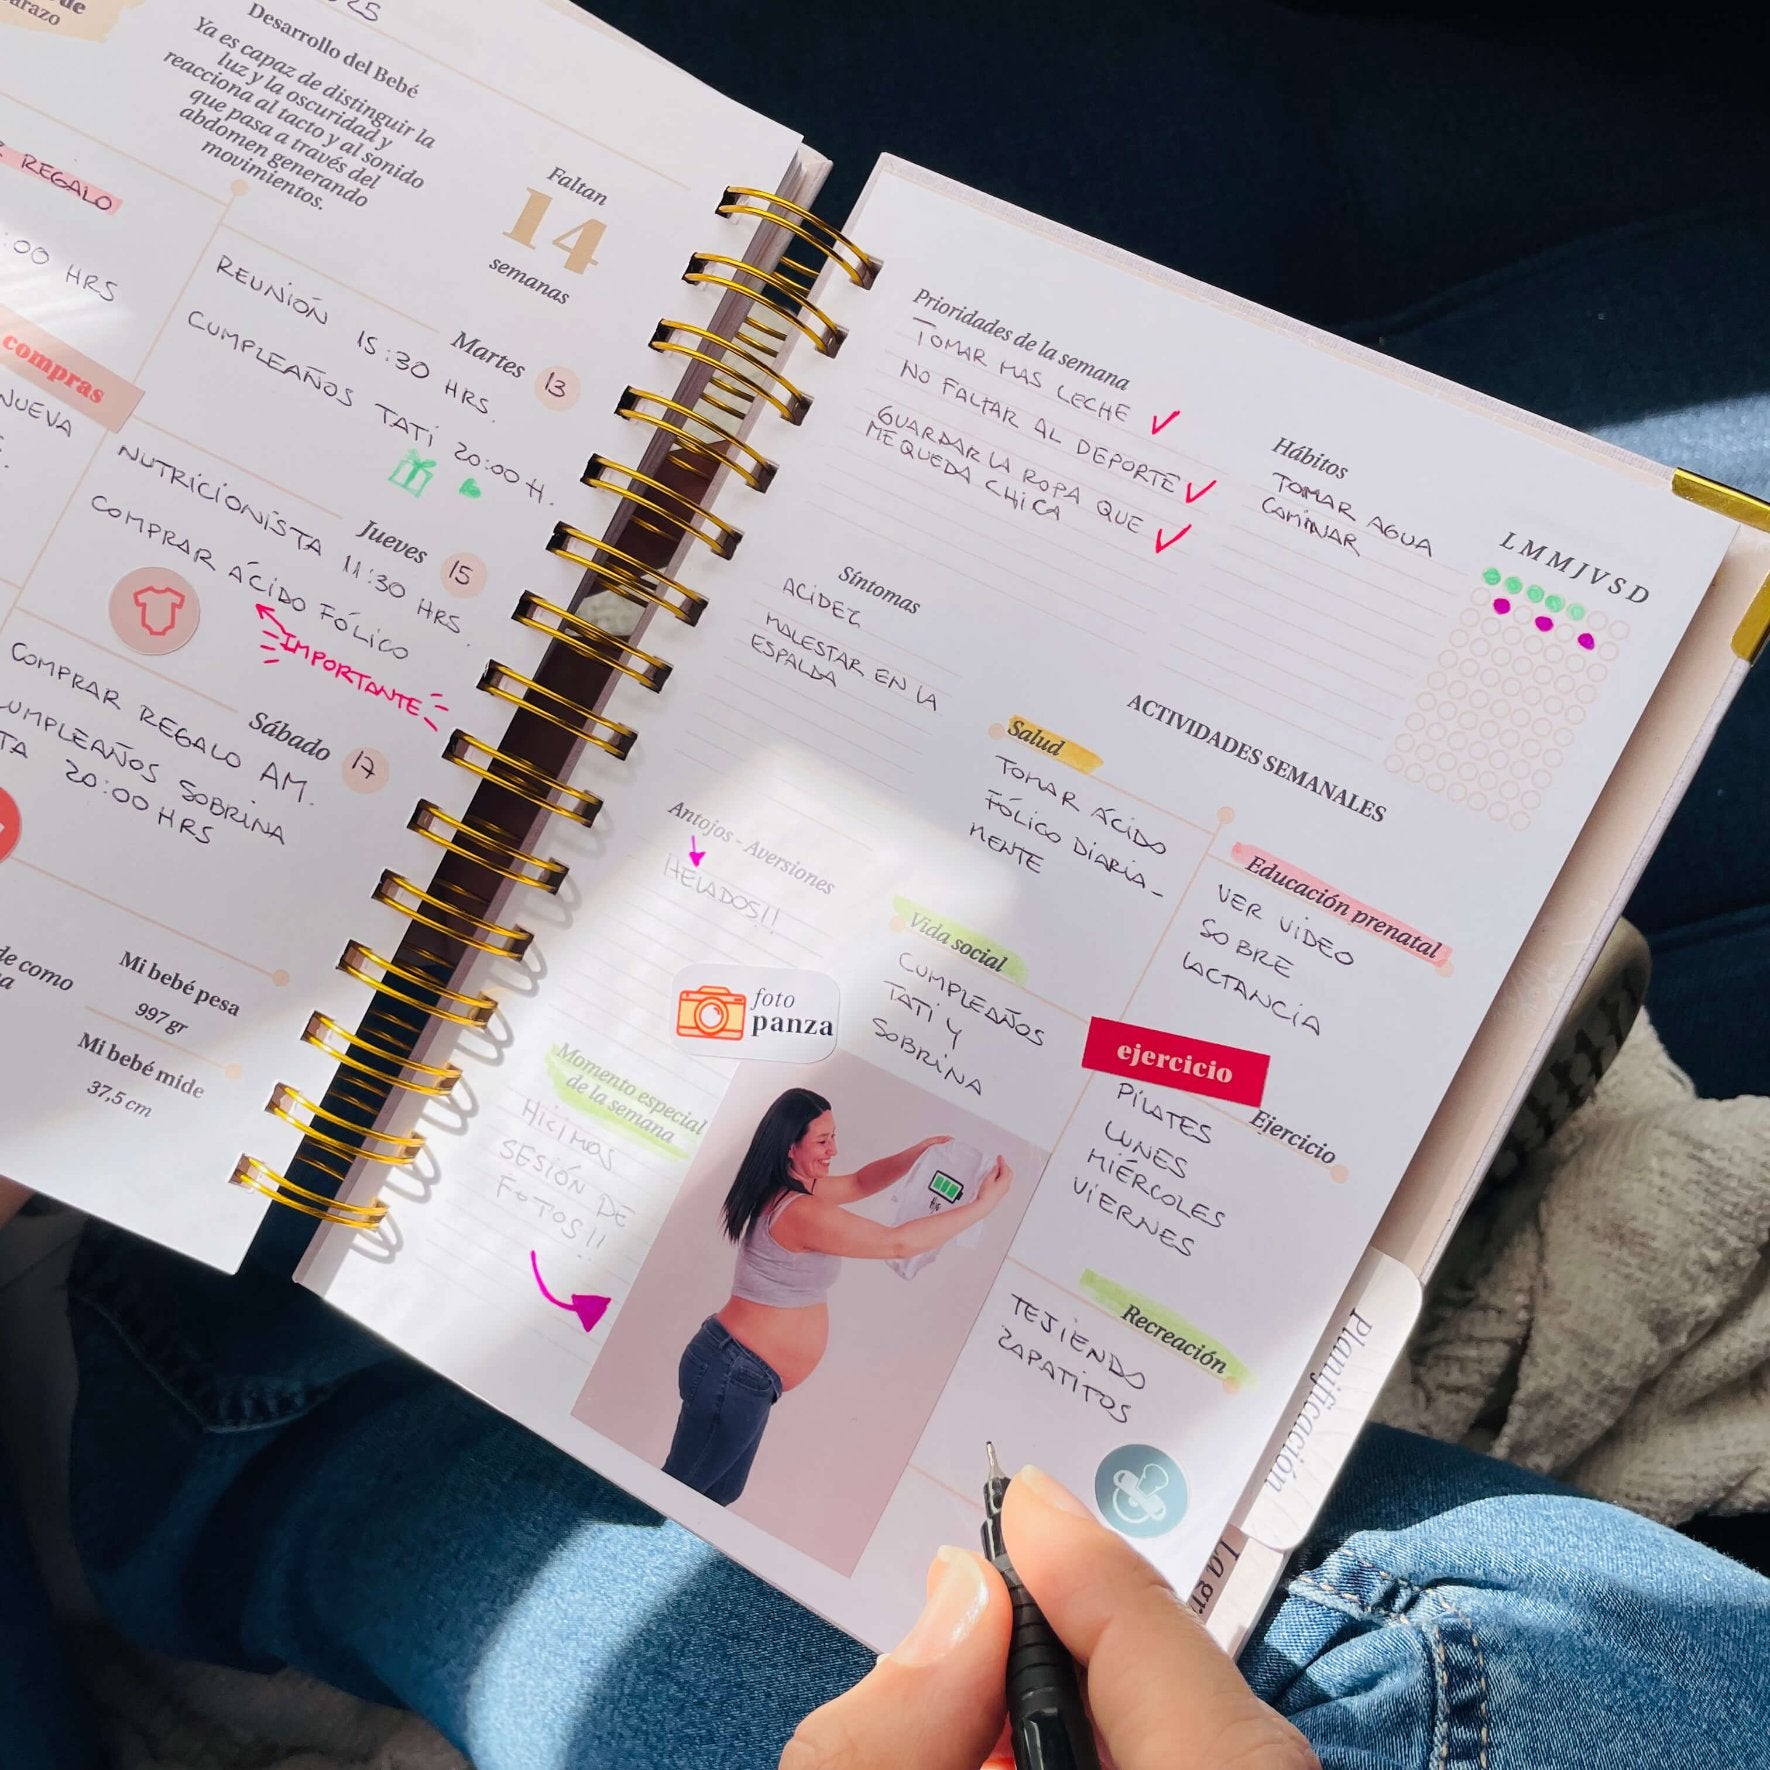 Desarrollo del Bebé
Ya es capaz de distinguir la
luz y la oscuridad y
reacciona al tacto y al sonido
que pasa a través del
abdomen generando
movimientos.
Faltan
14
semanas
REGALO
:00 HRS
compras
NUEVA
Martes 13
REUNIÓN 15:30 HRS.
CUMPLEAÑOS TATI 20:00 H.
Jueves 15
NUTRICIONISTA 11:30 HRS.
COMPRAR ÁCIDO FÓLICO
IMPORTANTE
Sábado 17
COMPRAR REGALO AM.
CUMPLEAÑOS SOBRINA
20:00 HRS
de como
Mi bebé pesa
997 gr
Mi bebé mide
37,5 cm
Prioridades de la semana
TOMAR MAS LECHE
NO FALTAR AL DEPORTE
GUARDAR LA ROPA QUE
ME QUEDA CHICA
Hábitos
TOMAR AGUA
CAMINAR
L M M J V S D
Síntomas
ACIDEZ
MALESTAR EN LA
ESPALDA
Antojos - Aversiones
HELADOS!!
foto
panza
Momento especial
de la semana
HICIMOS
SESIÓN DE
FOTOS!!
ACTIVIDADES SEMANALES
Salud
TOMAR ÁCIDO
FÓLICO DIARIA-
MENTE
Educación prenatal
VER VIDEO
SOBRE
LACTANCIA
Vida social
CUMPLEAÑOS
TATI Y
SOBRINA
ejercicio
Ejercicio
PILATES
LUNES
MIÉRCOLES
VIERNES
Recreación
TEJIENDO
ZAPATITOS
Planificación